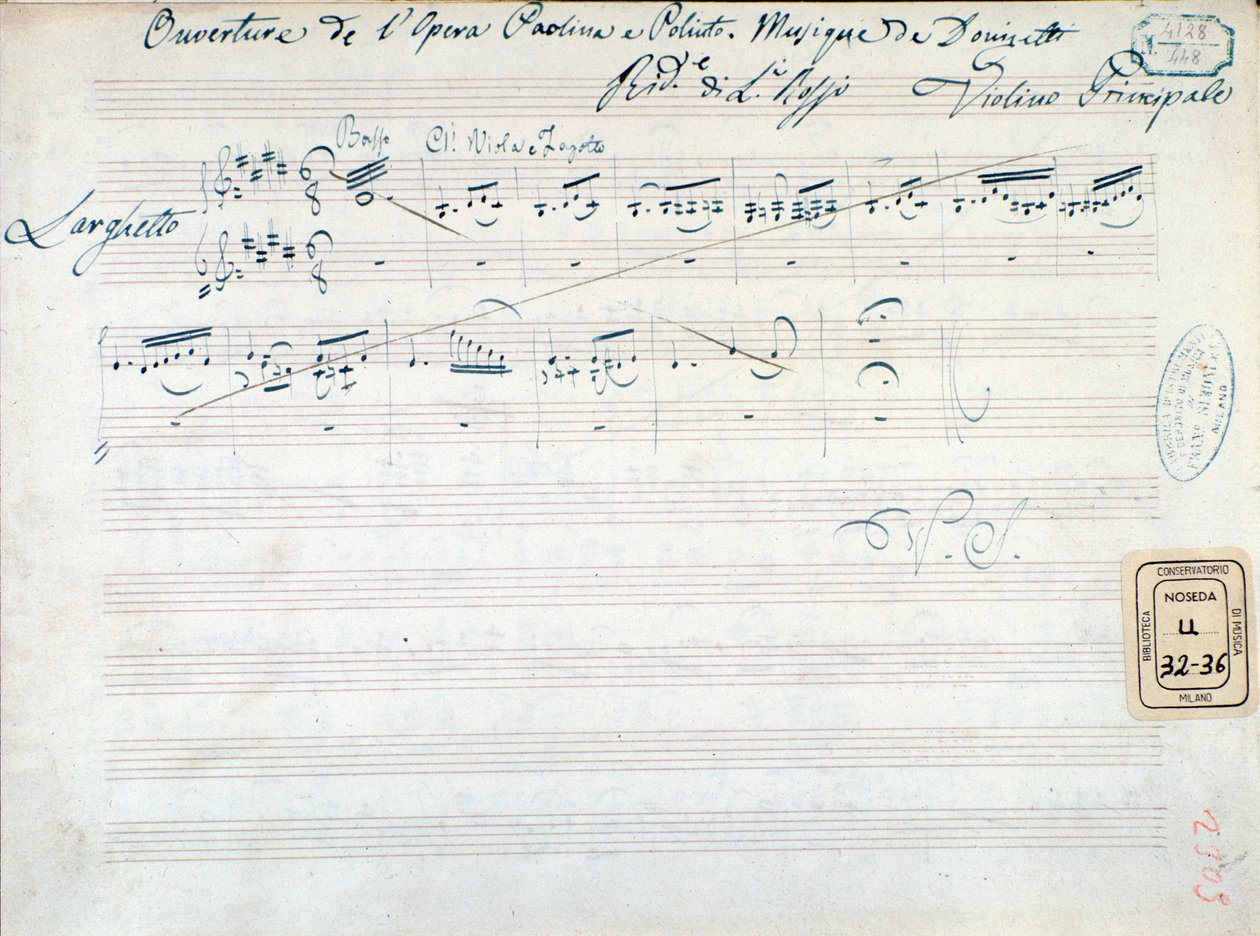 Ouverture de l'Opera Paolina e Poliuto. Musique de Donizetti
4128
448
Rid.e di L.i Rossi Violino Principale
Basso Cl.i Viola e Fagotto
Larghetto
6
8
6
8
V. S.
MILANO
CONSERVATORIO
NOSEDA
BIBLIOTECA
DI MUSICA
32-36
MILANO